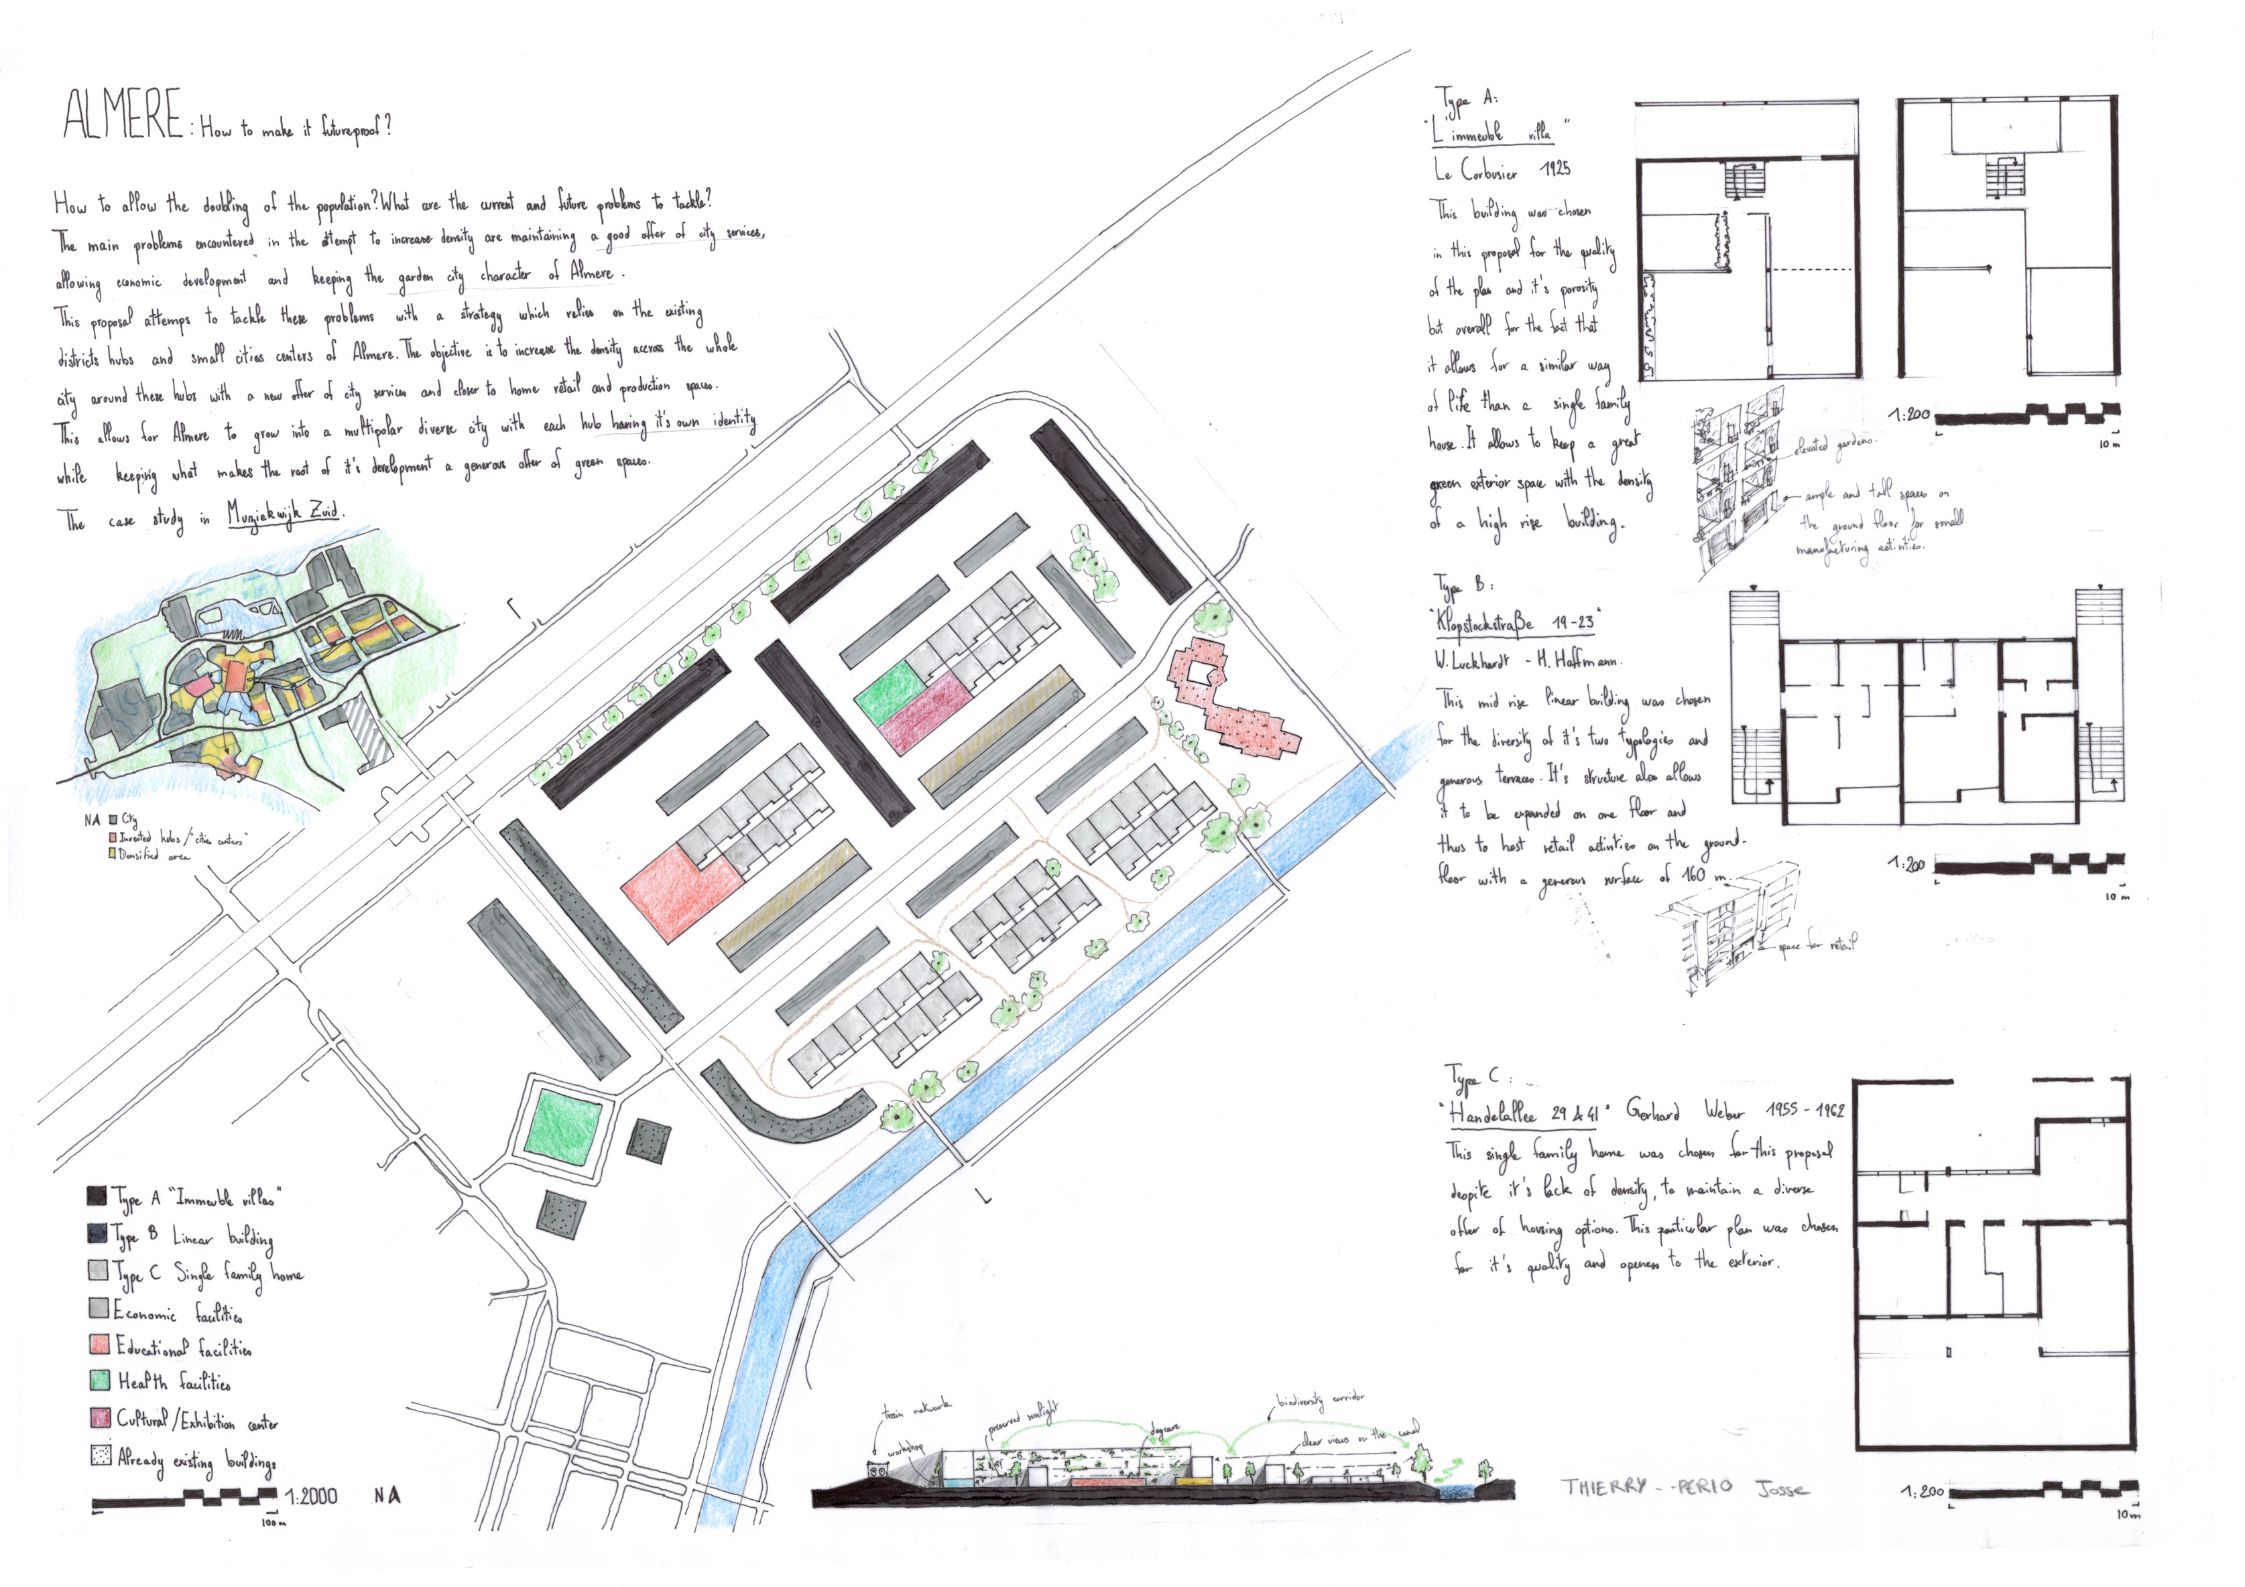 ALMERE: How to make it futureproof?
How to allow the doubling of the population? What are the current and future problems to tackle?
The main problems encountered in the attempt to increase density are maintaining a good offer of city services,
allowing economic development and keeping the garden city character of Almere.
This proposal attemps to tackle these problems with a strategy which relies on the existing
districts hubs and small cities centers of Almere. The objective is to increase the density accross the whole
city around these hubs with a new offer of city services and closer to home retail and production spaces.
This allows for Almere to grow into a multipolar diverse city with each hub having it's own identity
while keeping what makes the root of it's development a generous offer of green spaces.
The case study in Muziekwijk Zuid.
NA City
Invested hubs/"cities centers"
Densified area
Type A "Immeuble villas"
Type B Linear building
Type C Single family home
Economic facilities
Educational facilities
Health facilities
Cultural/Exhibition center
Already existing buildings
1:2000 NA
100m
train network
workshop
preserved sunlight
daycare
biodiversity corridor
clear views on the canal
Type A:
"L'immeuble villa"
Le Corbusier 1925
This building was chosen
in this proposal for the quality
of the plan and it's porosity
but overall for the fact that
it allows for a similar way
of life than a single family
house. It allows to keep a great
green exterior space with the density
of a high rise building.
1:200
10 m
elevated gardens.
ample and tall spaces on
the ground floor for small
manufacturing activities.
Type B:
"Klopstockstraße 19-23"
W. Luckhardt - H. Hoffmann.
This mid rise linear building was chosen
for the diversity of it's two typologies and
generous terraces. It's structure also allows
it to be expanded on one floor and
thus to host retail activities on the ground-
floor with a generous surface of 160 m.
1:200
10 m
space for retail
Type C:
"Handelallee 29 & 41" Gerhard Weber 1955-1962
This single family home was chosen for this proposal
despite it's lack of density, to maintain a diverse
offer of housing options. This particular plan was chosen
for it's quality and openess to the exterior.
1:200
10m
THIERRY--PERIO Josse